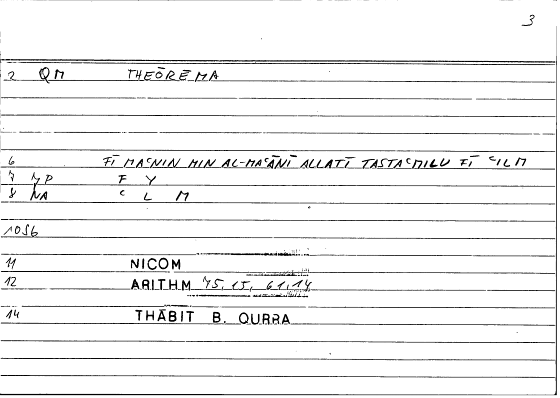 3
2 QM THEŌRĒMA
6 FĪ MAʿNIN MIN AL-MAʿĀNĪ ALLATĪ TASTAʿMILU FĪ ʿILM
7 MP F Y
8 NA ʿ L M
10 SG
11 NICOM
12 ARITHM 75,15, 61,14
14 THĀBIT B. QURRA